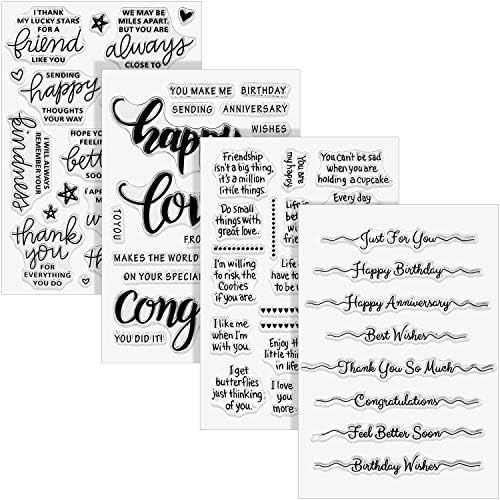 I THANK
MY LUCKY STARS
FOR A
friend
LIKE YOU
WE MAY BE
MILES APART,
BUT YOU ARE
always
CLOSE TO
SENDING
happy
THOUGHTS
YOUR WAY
kindness
I WILL ALWAYS
REMEMBER YOUR
HOPE YOU
FEELIN
bett
SOO
thank
you
FOR
EVERYTHING
YOU DO
YOU MAKE ME
BIRTHDAY
SENDING
ANNIVERSARY
happy
WISHES
lo
TO YOU
FRO
MAKES THE WORLD
ON YOUR SPECIAL
Cong
YOU DID IT!
Friendship
isn't a big thing,
it's a million
little things.
You are
my happy
You can't be sad
when you are
holding a cupcake.
Do small
things with
great love.
Life is
Every day
I'm willing
to risk the
Cooties
if you are.
Life
have to
to be
I like me
when I'm
with you.
Enjoy th
little thin
in life
I get
butterflies
just thinking
of you.
I love
you
more
Just For You
Happy Birthday
Happy Anniversary
Best Wishes
Thank You So Much
Congratulations
Feel Better Soon
Birthday Wishes